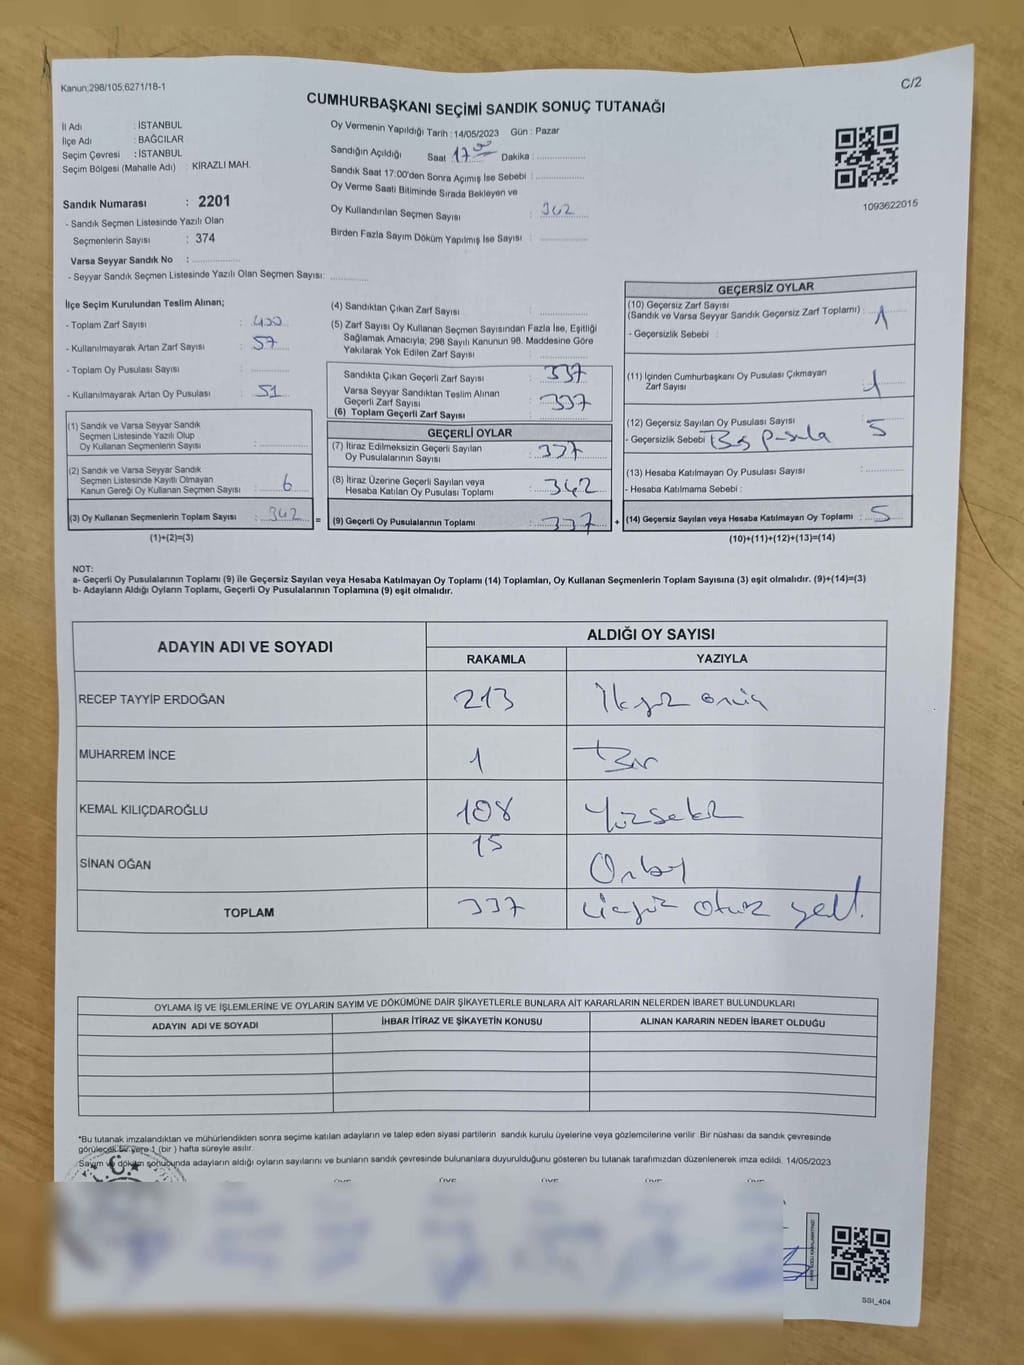 Kanun;298/105,6271/18-1
C/2
CUMHURBAŞKANI SEÇİMİ SANDIK SONUÇ TUTANAĞI
İl Adı : İSTANBUL
İlçe Adı : BAĞCILAR
Seçim Çevresi : İSTANBUL
Seçim Bölgesi (Mahalle Adı) : KİRAZLI MAH.
Sandık Numarası : 2201
- Sandık Seçmen Listesinde Yazılı Olan
Seçmenlerin Sayısı : 374
Varsa Seyyar Sandık No : ..............
- Seyyar Sandık Seçmen Listesinde Yazılı Olan Seçmen Sayısı: ............
Oy Vermenin Yapıldığı Tarih : 14/05/2023 Gün : Pazar
Sandığın Açıldığı Saat 17.00 Dakika : ..............
Sandık Saat 17:00'den Sonra Açımış İse Sebebi : ..............
Oy Verme Saati Bitiminde Sırada Bekleyen ve
Oy Kullandırılan Seçmen Sayısı : 342
Birden Fazla Sayım Döküm Yapılmış İse Sayısı : ..............
1093622015
İlçe Seçim Kurulundan Teslim Alınan;
- Toplam Zarf Sayısı : 400
- Kullanılmayarak Artan Zarf Sayısı : 57
- Toplam Oy Pusulası Sayısı : ..............
- Kullanılmayarak Artan Oy Pusulası : 51
(1) Sandık ve Varsa Seyyar Sandık
Seçmen Listesinde Yazılı Olup
Oy Kullanan Seçmenlerin Sayısı : ..............
(2) Sandık ve Varsa Seyyar Sandık
Seçmen Listesinde Kayıtlı Olmayan
Kanun Gereği Oy Kullanan Seçmen Sayısı : 6
(3) Oy Kullanan Seçmenlerin Toplam Sayısı : 342 =
(1)+(2)=(3)
(4) Sandıktan Çıkan Zarf Sayısı : ..............
(5) Zarf Sayısı Oy Kullanan Seçmen Sayısından Fazla İse, Eşitliği
Sağlamak Amacıyla; 298 Sayılı Kanunun 98. Maddesine Göre
Yakılarak Yok Edilen Zarf Sayısı : ..............
Sandıkta Çıkan Geçerli Zarf Sayısı : 337
Varsa Seyyar Sandıktan Teslim Alınan
Geçerli Zarf Sayısı : 337
(6) Toplam Geçerli Zarf Sayısı : ..............
GEÇERLİ OYLAR
(7) İtiraz Edilmeksizin Geçerli Sayılan
Oy Pusulalarının Sayısı : 337
(8) İtiraz Üzerine Geçerli Sayılan veya
Hesaba Katılan Oy Pusulası Toplamı : 342
(9) Geçerli Oy Pusulalarının Toplamı : 337 +
GEÇERSİZ OYLAR
(10) Geçersiz Zarf Sayısı
(Sandık ve Varsa Seyyar Sandık Geçersiz Zarf Toplamı) : 1
- Geçersizlik Sebebi :
(11) İçinden Cumhurbaşkanı Oy Pusulası Çıkmayan
Zarf Sayısı : 1
(12) Geçersiz Sayılan Oy Pusulası Sayısı : 5
- Geçersizlik Sebebi Boş pusula
(13) Hesaba Katılmayan Oy Pusulası Sayısı : ..............
- Hesaba Katılmama Sebebi :
(14) Geçersiz Sayılan veya Hesaba Katılmayan Oy Toplamı : 5
(10)+(11)+(12)+(13)=(14)
NOT:
a- Geçerli Oy Pusulalarının Toplamı (9) ile Geçersiz Sayılan veya Hesaba Katılmayan Oy Toplamı (14) Toplamları, Oy Kullanan Seçmenlerin Toplam Sayısına (3) eşit olmalıdır. (9)+(14)=(3)
b- Adayların Aldığı Oyların Toplamı, Geçerli Oy Pusulalarının Toplamına (9) eşit olmalıdır.
ADAYIN ADI VE SOYADI
ALDIĞI OY SAYISI
RAKAMLA YAZIYLA
RECEP TAYYİP ERDOĞAN 213 İkiyüz onüç
MUHARREM İNCE 1 Bir
KEMAL KILIÇDAROĞLU 108 Yüzsekiz
SİNAN OĞAN 15 Onbeş
TOPLAM 337 Üçyüz otuz yedi.
OYLAMA İŞ VE İŞLEMLERİNE VE OYLARIN SAYIM VE DÖKÜMÜNE DAİR ŞİKAYETLERLE BUNLARA AİT KARARLARIN NELERDEN İBARET BULUNDUKLARI
ADAYIN ADI VE SOYADI İHBAR İTİRAZ VE ŞİKAYETİN KONUSU ALINAN KARARIN NEDEN İBARET OLDUĞU
*Bu tutanak imzalandıktan ve mühürlendikten sonra seçime katılan adayların ve talep eden siyasi partilerin sandık kurulu üyelerine veya gözlemcilerine verilir. Bir nüshası da sandık çevresinde
görülecek bir yere 1 (bir ) hafta süreyle asılır.
Sayım ve döküm sonucunda adayların aldığı oyların sayılarını ve bunların sandık çevresinde bulunanlara duyurulduğunu gösteren bu tutanak tarafımızdan düzenlenerek imza edildi. 14/05/2023
SSI_404